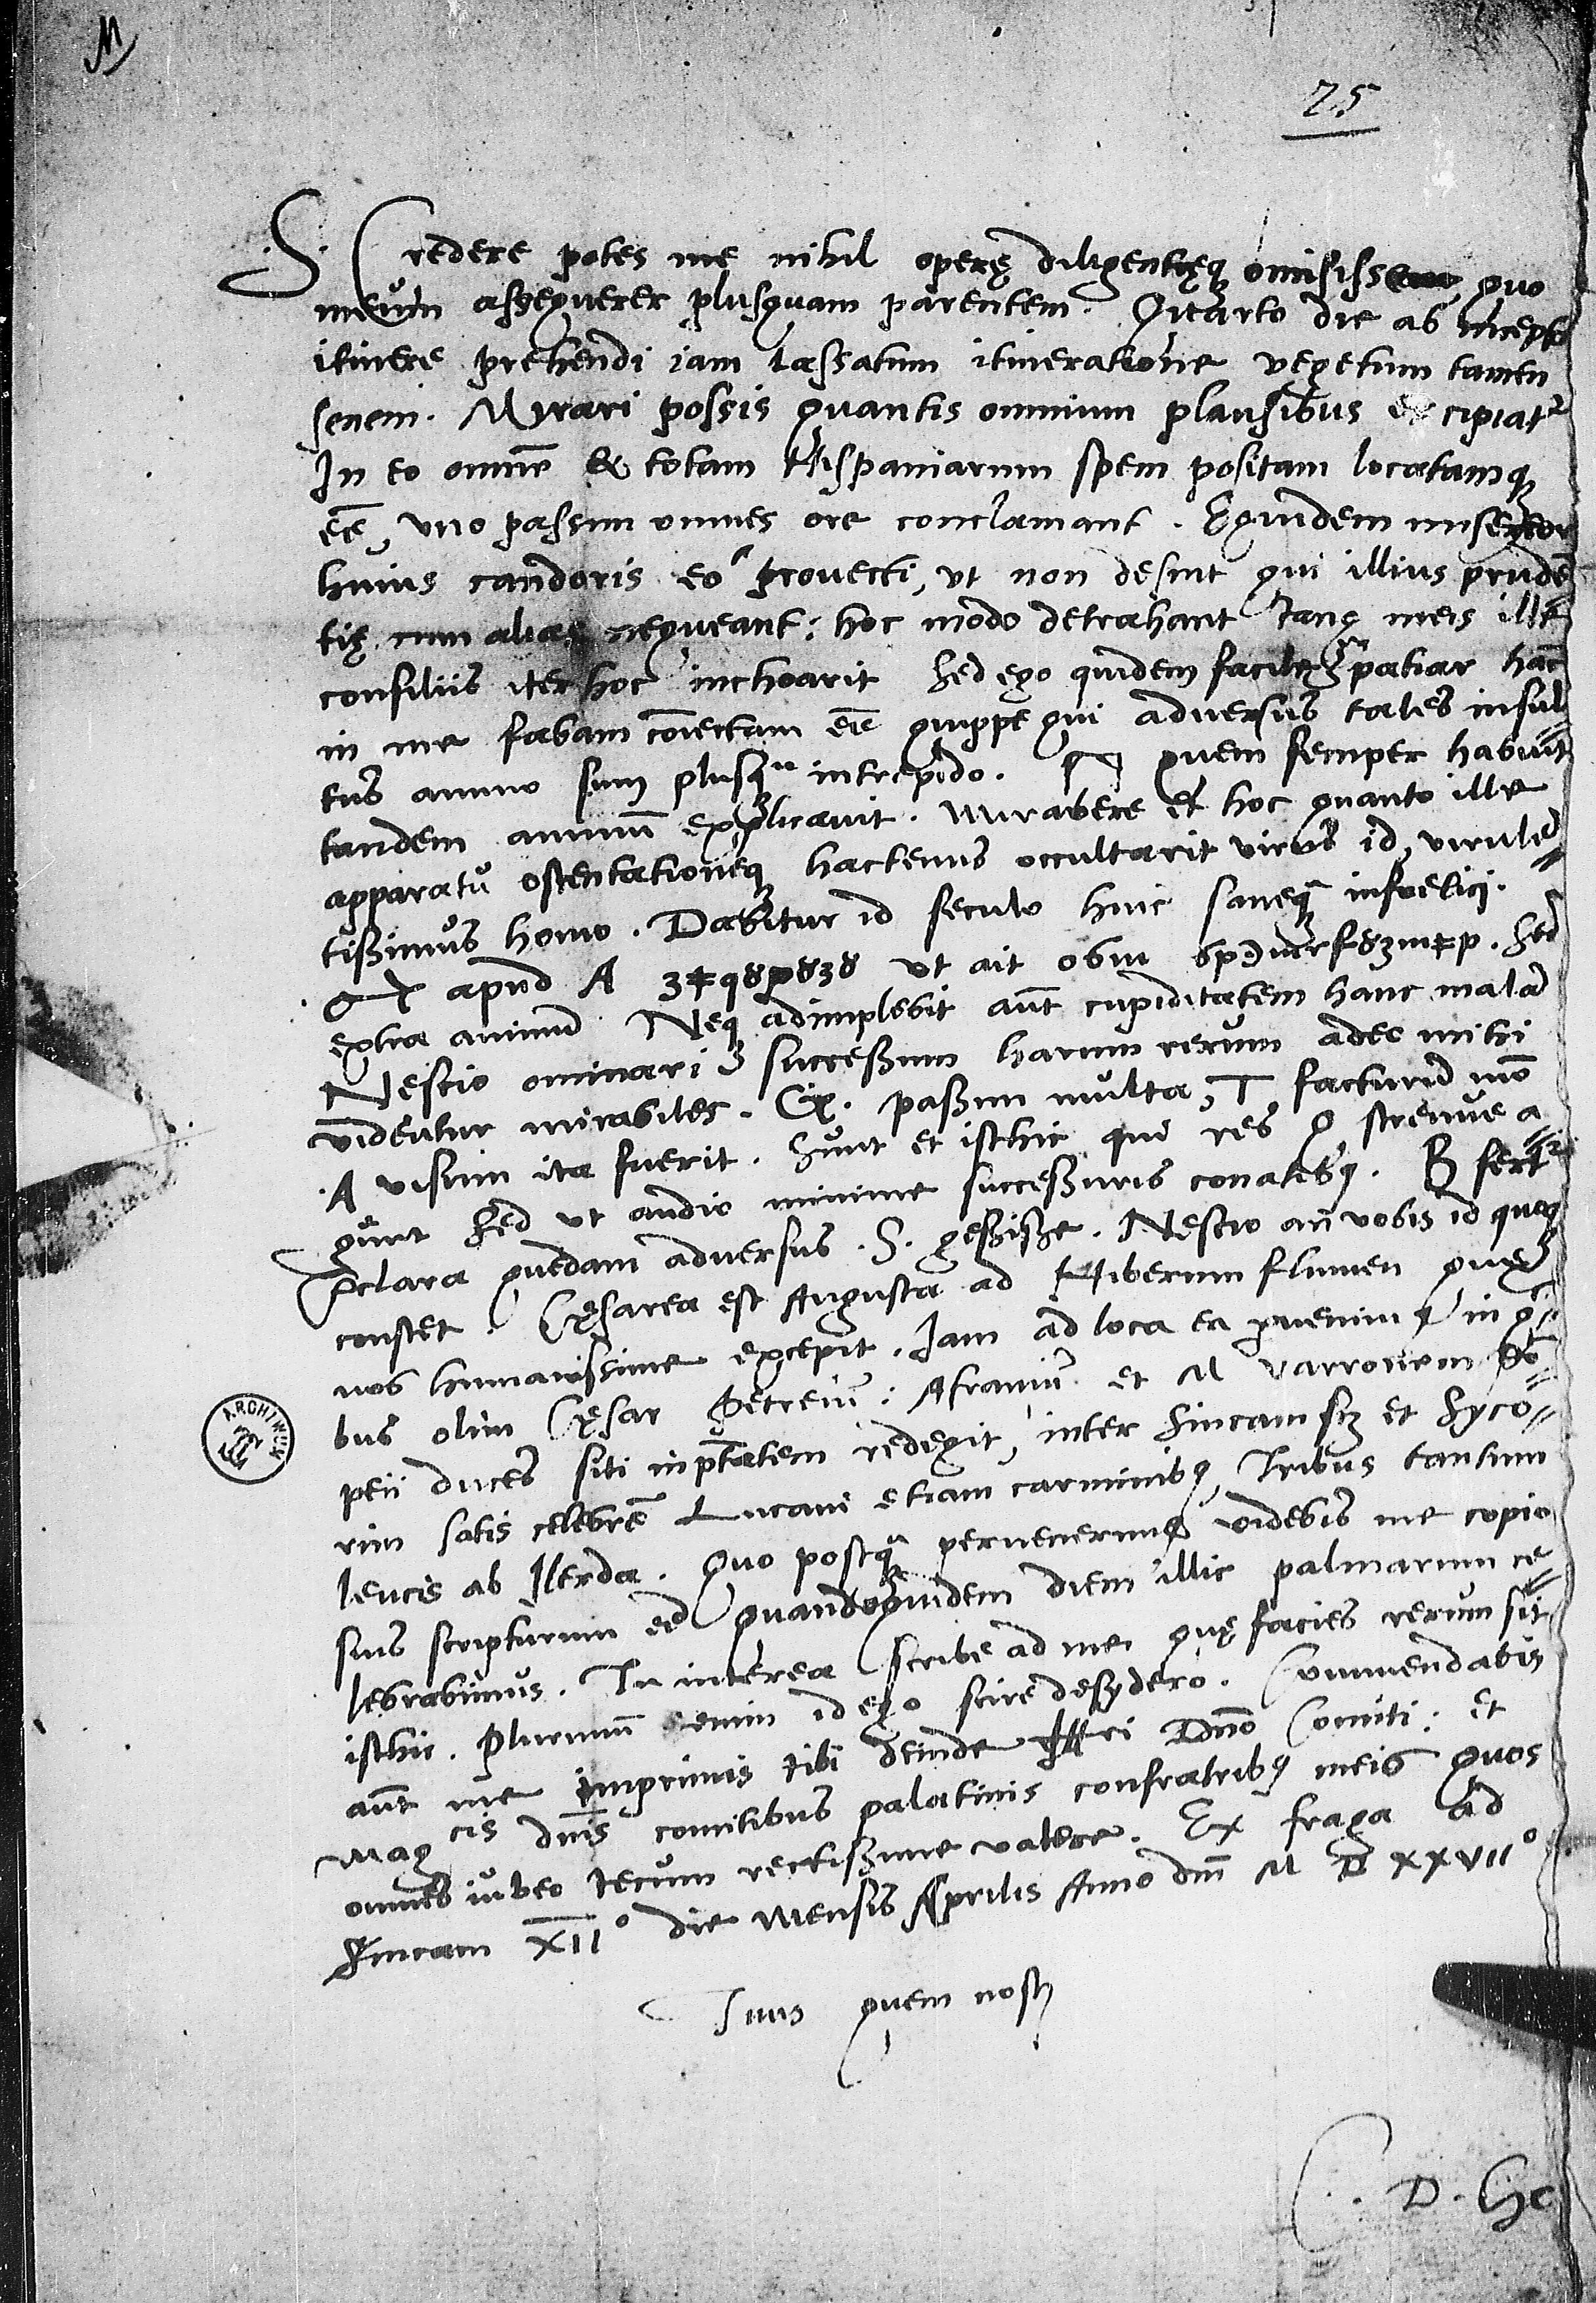 M
25
S Credere potes me nihil operę diligentięq omisisse quo
meum assequerer plusquam parentem. Quarto die ab incepto
itinere prehendi iam lassatum itineratione vegetum tamen
senem. Myrari possis quantis omnium plausibus excipiat
In eo omne & totam Hispaniarum spem positam locatamq
eē uno passim omnes ore conclamant. Equidem misereor
huius candoris eo provecti, ut non desint qui illius prudē
tię cum alias nequeant: hoc modo detrahant tanq meis ille
consiliis iter hoc inchoarit sed ego quidem facile patiar hāc
in me fabam coniectam eē quippe qui adversus tales insul
tus animo sum plusq intrepido. quem semper habuit
tandem animū explicavit. Mirabere et hoc quanto ille
apparatu ostentationeq hactenus occultarit virus id, virulē
tissimus homo. Dabitur id seculo huic saneq infoelici.
apud A ut ait obiu sed
extra animū. Neq adimplebit aūt cupiditatem hanc malā
Nescio ominari successum harum rerum adeo mihi
videntur mirabiles. passim multa, T facturū mō
A visum ita fuerit. Sunt et isthic qui res strenue a
gunt sed ut audio minime successuris conatibq. B fert
pclara quedam adversus S. gessisse. Nescio an vobis id quoq
constet. Cęsarea est Augusta ad Hiberum flumen quę
nos humanissime excepit. Iam ad loca ea pvenimq in q
bus olim Cęsar Petreiū: Afraniū et M Varronem Pō
peii duces siti in ptatem redegit, inter Fincam scz et Syco
rim satis celebrē Lucani etiam carminibq, Tribus tantum
leucis ab Ilerda. Quo postq pervenerimus videbis me copio
sius scripturum eē quandoquidem diem illic palmarum ce
lebrabimus. Tu interea scribe ad me quę facies rerum sit
isthic. Plurimum enim id ego scire desydero. Commendabis
aūt me imprimis tibi deinde Dnō Comiti: et
Magcis dnis comitibus palatinis confratribq meis quos
omnes iubeo tecum rectissime valere. Ex fraga ad
Fincam XII° die Mensis Aprilis Anno dnī M D XXVII°
Tuus quem nosti
ARCHIWUM
C. D. Hc